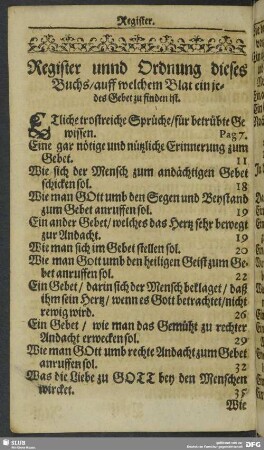 Register.
Register unnd Ordnung dieses
Buchs/auff welchem Blat ein je-
des Gebet zu finden ist.
ETliche trostreiche Sprüche/für betrübte Ge
wissen. Pag 7.
Eine gar nötige und nützliche Erinnerung zum
Gebet. 11
Wie sich der Mensch zum andächtigen Gebet
schicken sol. 18
Wie man GOtt umb den Segen und Beystand
zum Gebet anruffen sol. 19
Ein ander Gebet/welches das Hertz sehr bewegt
zur Andacht. 19
Wie man sich im Gebet stellen sol. 20
Wie man Gott umb den heiligen Geist zum Ge-
bet anruffen sol. 22
Ein Gebet/darin sich der Mensch beklaget/daß
ihm sein Hertz/wenn es Gott betrachtet/nicht
rewig wird. 26
Ein Gebet/wie man das Gemüht zu rechter
Andacht erwecken sol. 29
Wie man GOtt umb rechte Andacht zum Gebet
anruffen sol. 32
Was die Liebe zu GOTT bey den Menschen
wircket. 35
Wie
SLUB
DFG